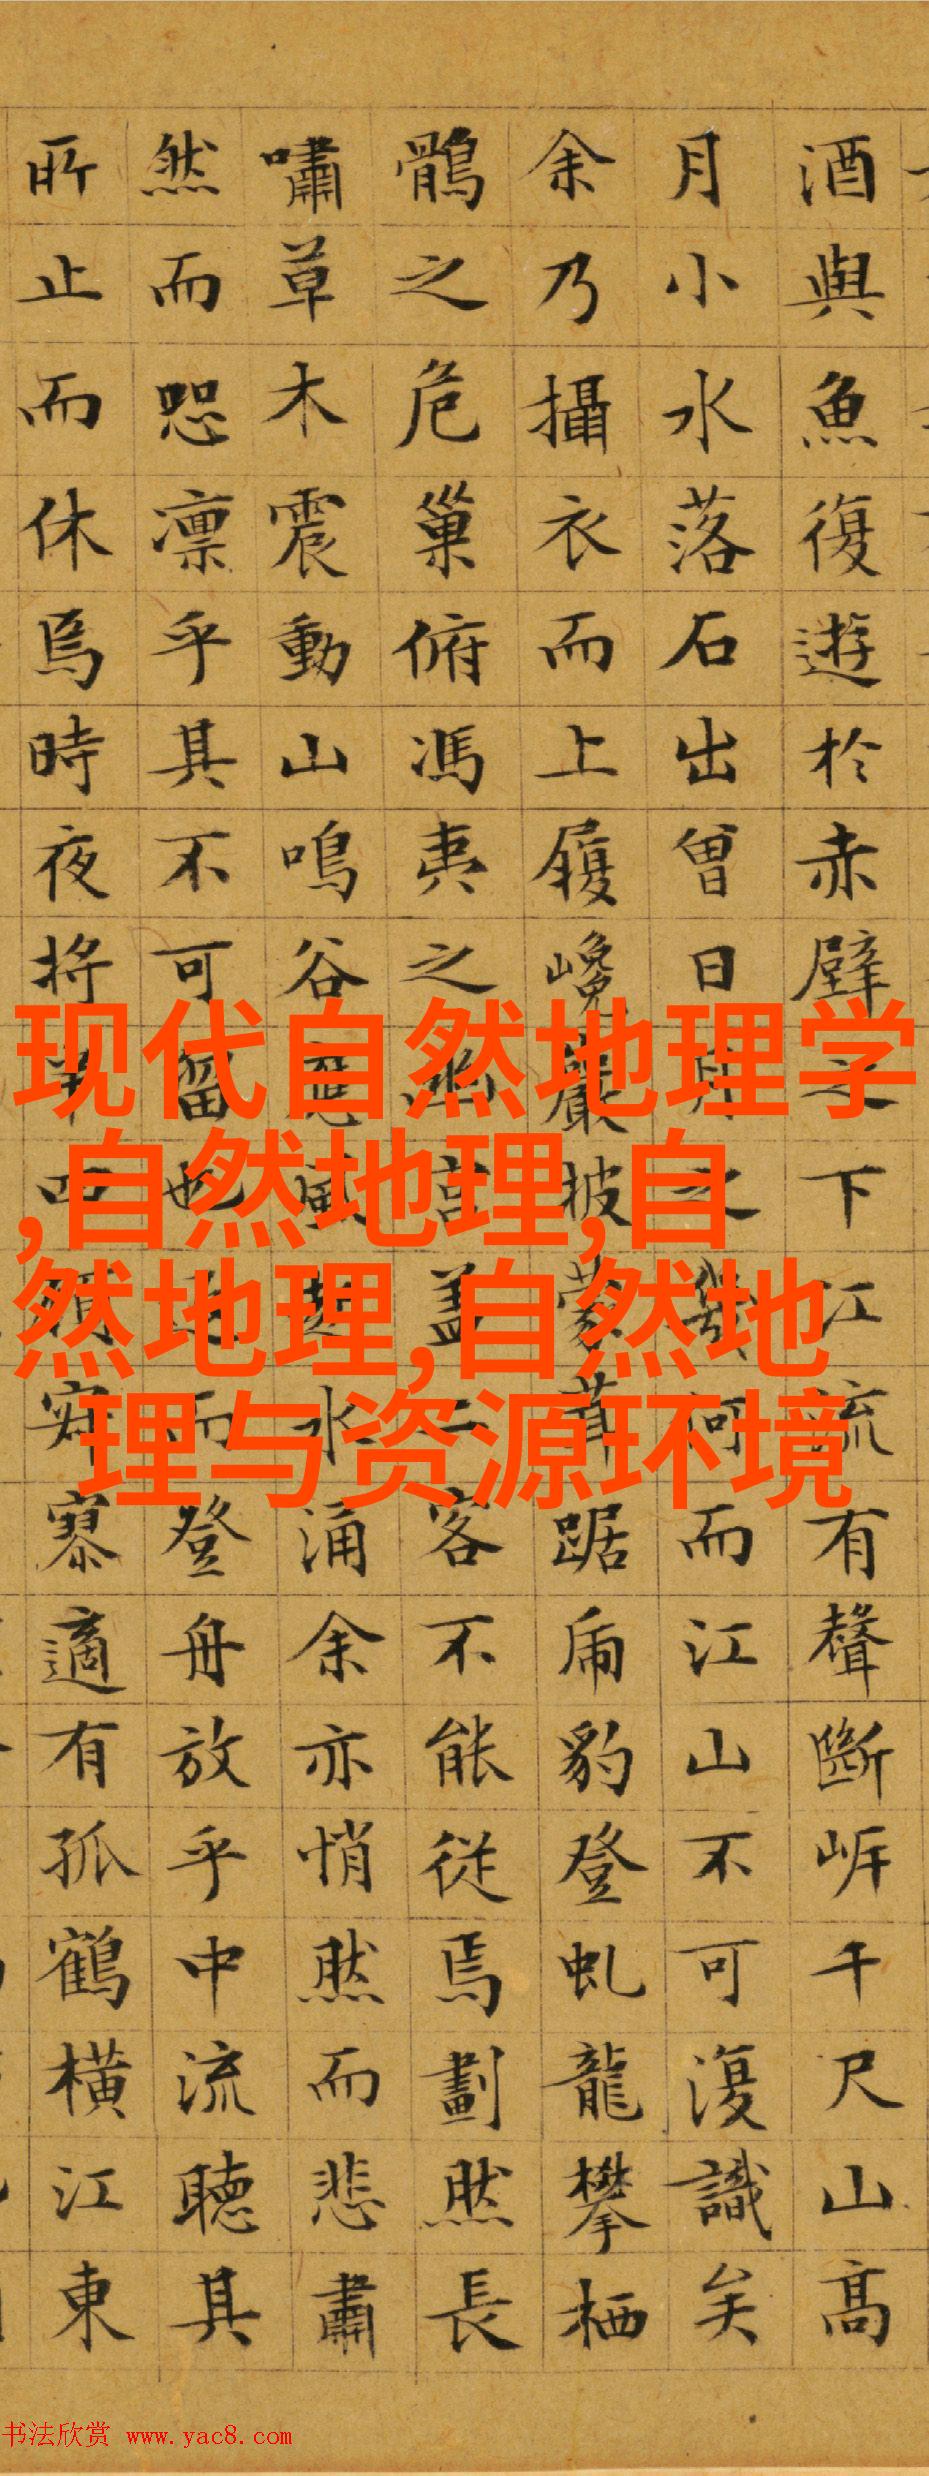 酒與魚復遊於赤壁之下江流有聲斷岸千尺山高
月小水落石出曾日月之幾何而江山不可復識矣
余乃攝衣而上履巉巖披蒙茸踞虎豹登虬龍攀栖
鶻之危巢俯馮夷之幽宮蓋二客不能從焉劃然長
嘯草木震動山鳴谷應風起水涌余亦悄然而悲肅
然而恐凛乎其不可留也反而登舟放乎中流聽其
所止而休焉時夜將半四顧寂寥適有孤鶴橫江東
现代自然地理学
,自然地理,自
然地理,自然地
理与资源环境
书法欣赏 www.yac8.com